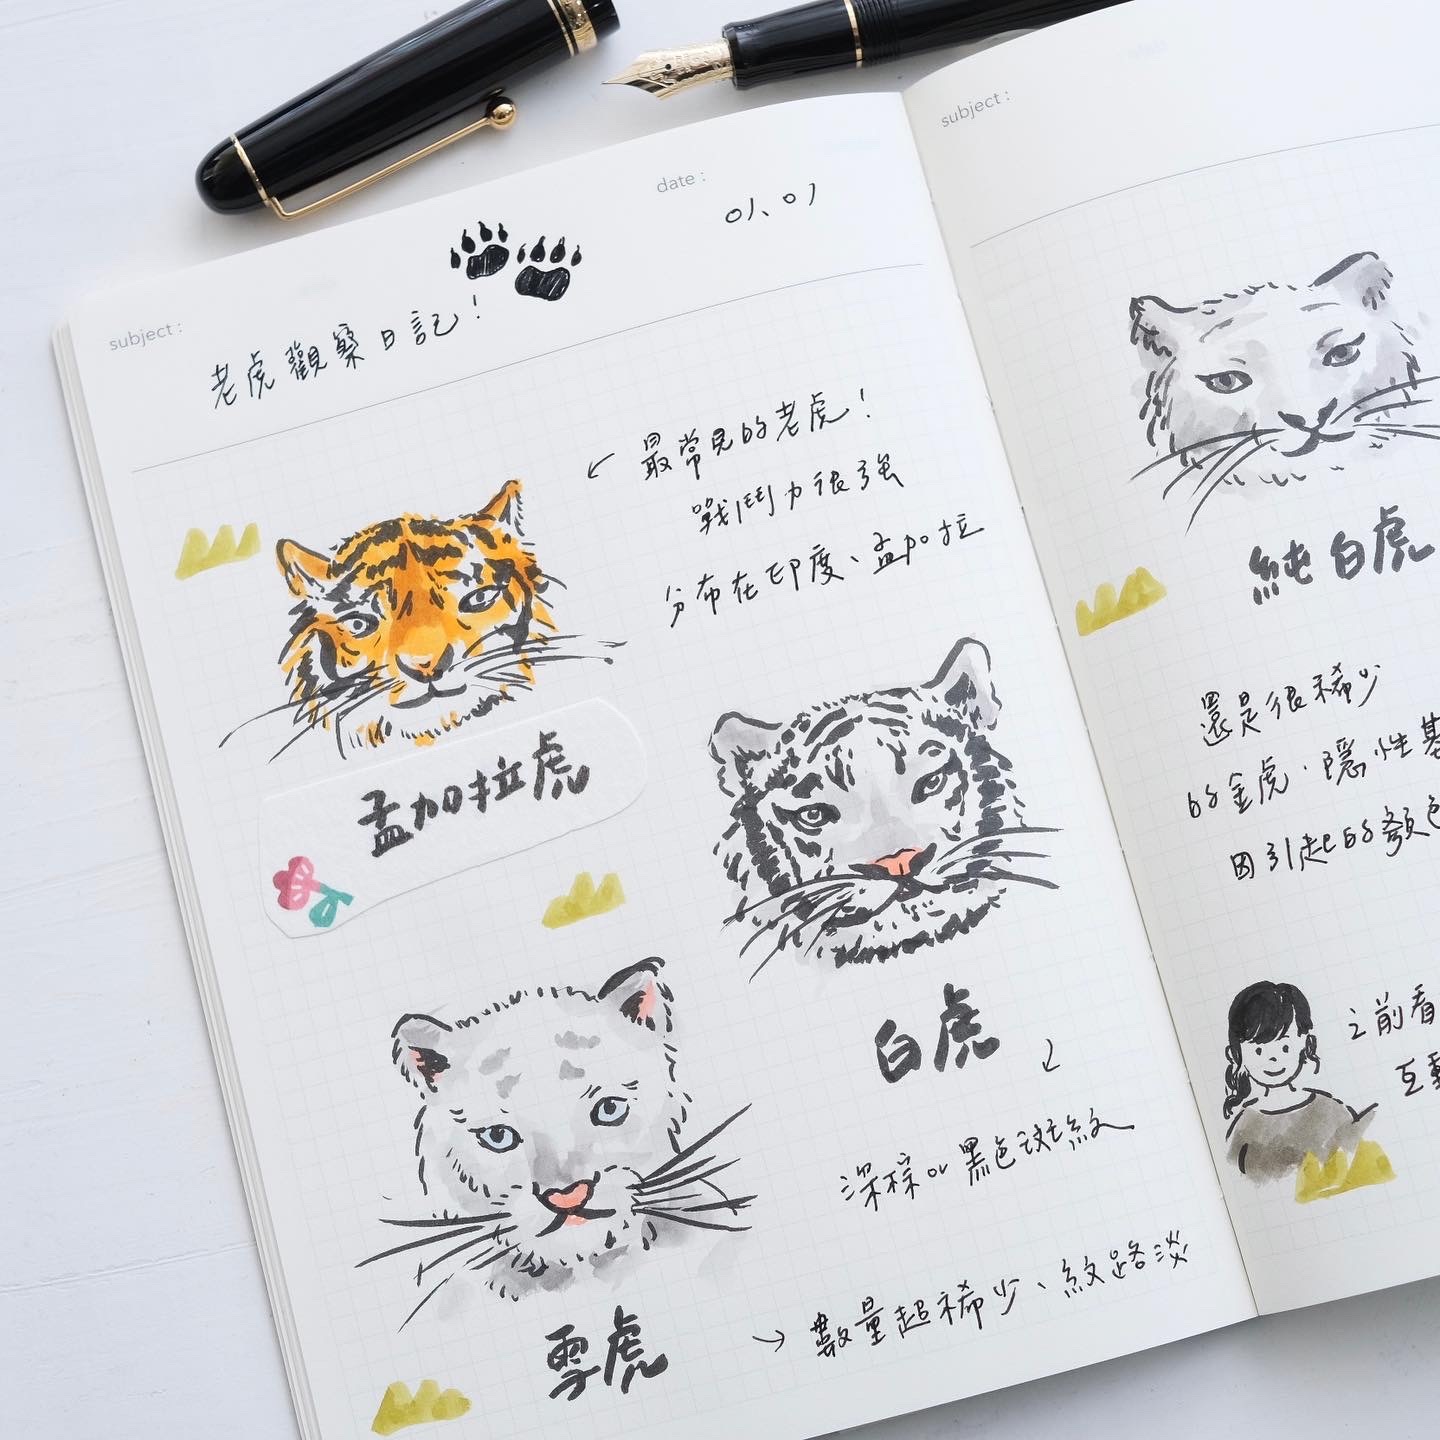 subject :
date :
01、01
老虎觀察日記！
← 最常見的老虎！
戰鬥力很強
分布在印度、孟加拉
孟加拉虎
白虎
深棕or黑色斑紋
雪虎
→ 數量超稀少、紋路淡
subject :
純白虎
還是很稀少
的金虎，隱性基
因引起的顏色
之前看
互動